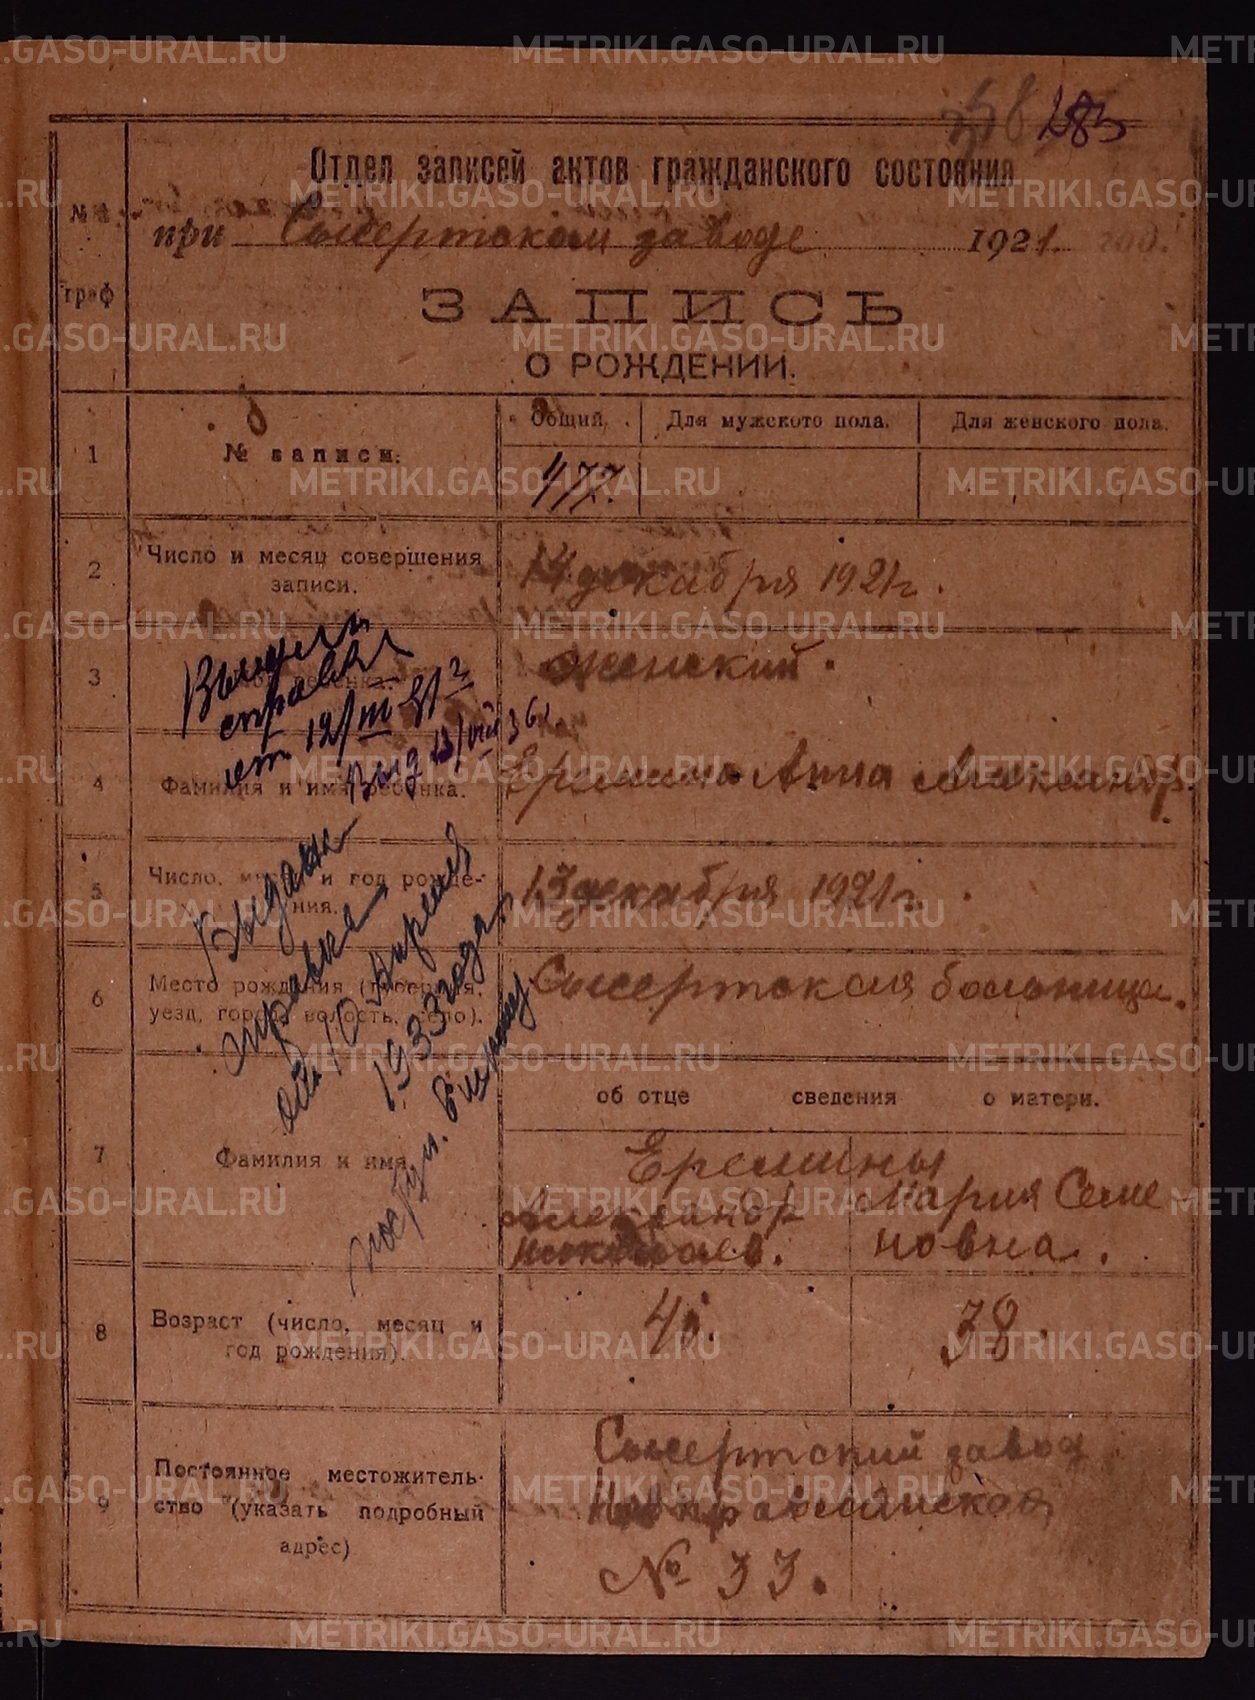 METRIKI.GASO-URAL.RU
283
Отдел записей актов гражданского состояния
при Сысертском заводе 1921 год.
№№
граф
ЗАПИСЬ
О РОЖДЕНИИ.
1
№ записи.
Общий.
Для мужского пола.
Для женского пола.
477.
2
Число и месяц совершения
записи.
14 декабря 1921 г.
3
женский.
4
Фамилия и имя ребенка.
Еремина Анна Александр.
5
Число, месяц и год рожде-
ния.
13 декабря 1921 г.
6
Место рождения (губерния,
уезд, город, волость, село).
Сысертская больница.
об отце сведения о матери.
7
Фамилия и имя
Еремины
Александр
Николаев.
Мария Семе-
новна.
8
Возраст (число, месяц и
год рождения).
38.
9
Постоянное местожитель-
ство (указать подробный
адрес)
Сысертский завод
№ 33.
справка
от 12/III
Выд 13/VII 36 г.
Выдана
справка
от 10 Апреля
1933 года